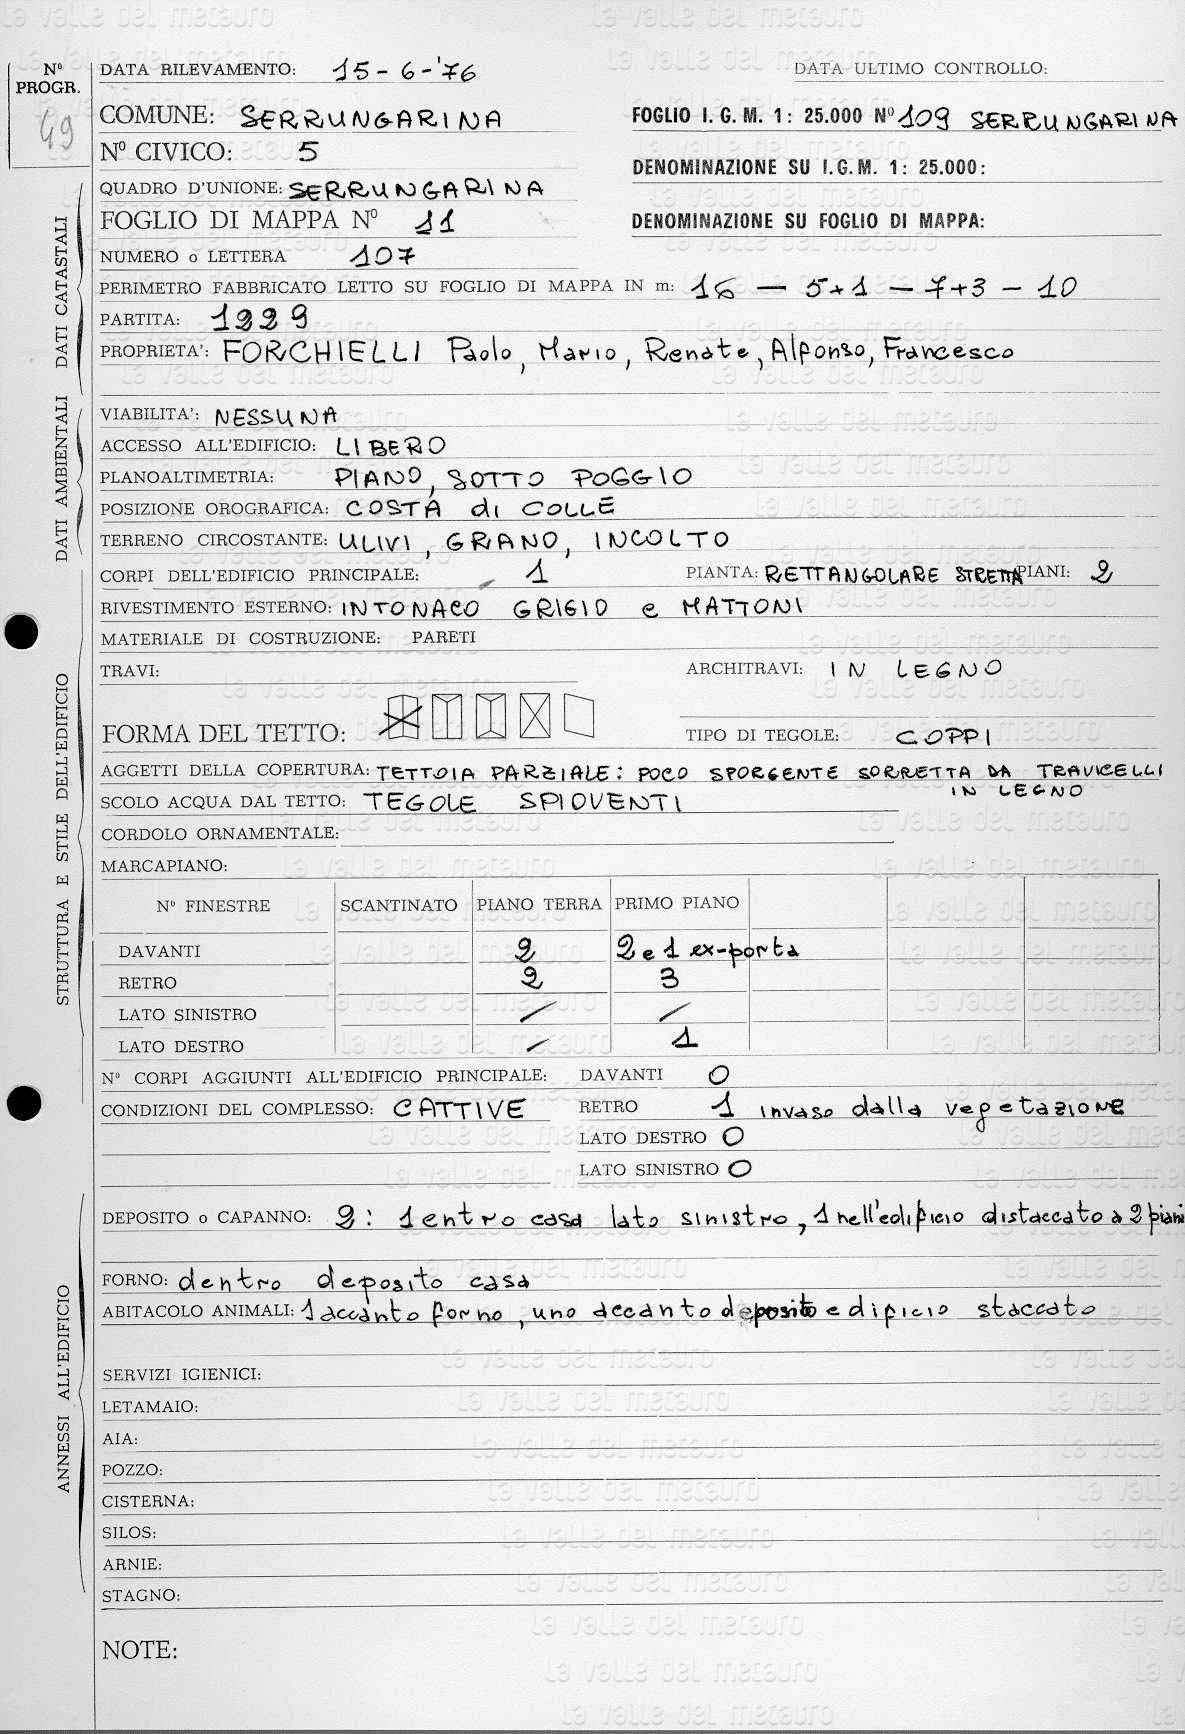 Nº PROGR.
49
DATA RILEVAMENTO: 15-6-'76
DATA ULTIMO CONTROLLO:
COMUNE: SERRUNGARINA
FOGLIO I.G.M. 1: 25.000 Nº 109 SERRUNGARINA
Nº CIVICO: 5
DENOMINAZIONE SU I.G.M. 1: 25.000:
QUADRO D'UNIONE: SERRUNGARINA
FOGLIO DI MAPPA Nº 11
DENOMINAZIONE SU FOGLIO DI MAPPA:
NUMERO o LETTERA 107
PERIMETRO FABBRICATO LETTO SU FOGLIO DI MAPPA IN m: 16 — 5+1 — 7+3 — 10
PARTITA: 1229
PROPRIETA': FORCHIELLI Paolo, Mario, Renate, Alfonso, Francesco
DATI CATASTALI
VIABILITA': NESSUNA
ACCESSO ALL'EDIFICIO: LIBERO
PLANOALTIMETRIA: PIANO, SOTTO POGGIO
POSIZIONE OROGRAFICA: COSTA di COLLE
TERRENO CIRCOSTANTE: ULIVI, GRANO, INCOLTO
DATI AMBIENTALI
CORPI DELL'EDIFICIO PRINCIPALE: 1 PIANTA: RETTANGOLARE STRETTA PIANI: 2
RIVESTIMENTO ESTERNO: INTONACO GRIGIO e MATTONI
MATERIALE DI COSTRUZIONE: PARETI
TRAVI: ARCHITRAVI: IN LEGNO
FORMA DEL TETTO: TIPO DI TEGOLE: COPPI
AGGETTI DELLA COPERTURA: TETTOIA PARZIALE: POCO SPORGENTE SORRETTA DA TRAVICELLI
IN LEGNO
SCOLO ACQUA DAL TETTO: TEGOLE SPIOVENTI
CORDOLO ORNAMENTALE:
MARCAPIANO:
Nº FINESTRE SCANTINATO PIANO TERRA PRIMO PIANO
DAVANTI 2 2 e 1 ex-porta
RETRO 2 3
LATO SINISTRO / /
LATO DESTRO / 1
STRUTTURA E STILE DELL'EDIFICIO
Nº CORPI AGGIUNTI ALL'EDIFICIO PRINCIPALE: DAVANTI 0
CONDIZIONI DEL COMPLESSO: CATTIVE RETRO 1 invaso dalla vegetazione
LATO DESTRO 0
LATO SINISTRO 0
DEPOSITO o CAPANNO: 2: 1 entro casa lato sinistro, 1 nell'edificio distaccato a 2 piani
FORNO: dentro deposito casa
ABITACOLO ANIMALI: 1 accanto forno, uno accanto deposito edificio staccato
SERVIZI IGIENICI:
LETAMAIO:
AIA:
POZZO:
CISTERNA:
SILOS:
ARNIE:
STAGNO:
ANNESSI ALL'EDIFICIO
NOTE:
la valle del metauro